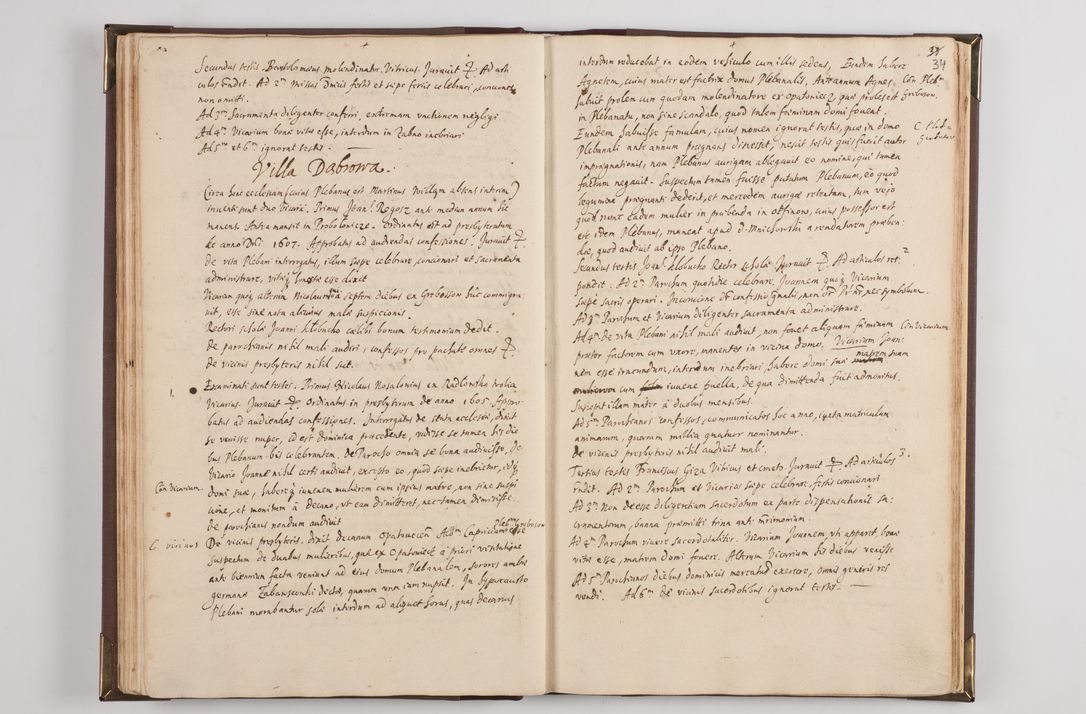 Secundus testis Bartolomæus molendinator, Vitricus. Jurauit. Ad arti
culos respondit. Ad 2m missas diebus festis et sæpe feriis celebrari, conciones
non omitti.
Ad 3m Sacramenta diligenter conferri, extremam unctionem negligi
Ad 4m Vicarium bonæ vitæ esse, interdum in Zabno inebriari
Ad 5m et 6m ignorat testis.
Villa Dabrowa.
Circa hanc ecclesiam (cuius Plebanus est Martinus absens interim)
inuenti sunt duo Vicarii. Primus Joan. Rogosz ante medium annum hic
manens. Antea mansit in Ordinatus est ad presbyteratum
de anno Dni 1607. Approbatus ad audiendas confessiones. Jurauit
de vita Plebani interrogatus, illum sæpe celebrare, concionari et sacramenta
administrare, vitæq honestæ esse dixit
Vicarium quoq alterum Nicolaum qui a septem diebus ex Grebossow huc commigra
uit, esse sine nota alicuius malæ suspicionis.
Rectori scholæ Joanni Klobucko cælibi bonum testimonium dedit.
De parochianis nihil mali audiri, confessos pro paschate omnes
De vicinis presbyteris nihil scit.
1. Examinati sunt testes. Primus Nicolaus ex Radlowska
Vicarius. Jurauit. Ordinatus in presbyterum de anno 1605. Appro
batus ad audiendas confessiones. Interrogatus de statu ecclesiæ, dixit
se venisse nuper, id est dominica præcedente, vidisse se tamen his die
bus Plebanum bis celebrantem. De Parocho omnia se bona audiuisse, De
Vicario Joanne nihil certi audiuit, excepto eo, quod sæpe inebrietur, idq
Con Vicarium domi suæ, habereq iuuenem mulierem cum ipsius matre, non sine suspi
cione, et monitum à Decano, vt eam dimitteret, nec tamen dimisisse.
de parochianis nondum audiuit
C. vicinos De vicinis presbyteris. dixit Decanum Opatouiecen Albm Capricium Plebnm Grebosou esse
suspectum de duabus mulieribus, quæ ex Opatouiecz à priori
ante biennium factæ veniunt ad eius domum Plebanalem, sorores ambæ
germanæ dictæ, quarum una iam nupsit. In hypocausto
Plebani morabantur solæ interdum ad aliquot horas, quas decanus
34
interdum reducebat in eodem vehiculo cum illis sedens, Eundem habere
Agnetem, cuius mater est factrix domus Plebanalis. Ante annum Agnes Con Pleb.
habuit prolem cum quodam molendinatore ex opatouiecz, quæ proles est Grebosou.
in Plebanatu, non sine scandalo, quod talem fæminam domi fouent.
Eundem habuisse famulam, cuius nomen ignorat testis, quæ in domo
Plebanali ante annum prægnans discessit, nescit testis quis fuerit autor
imprægnationis, nam Plebanus aurigam ablegauit eo nomine, qui tamen
factum negauit. Suspectum tamen fuisse putatum Plebanum, eo quod
legumina prægnanti dederit, et mercedem aurigæ retentam, tum vero
quod nunc eadem mulier in præbenda in offinow, cuius possessor est
est idem Plebanus, maneat apud d. arendatorem præben
dæ, quod audiuit ab ipso Plebano.
2. Secundus testis Joan. Klobucko Rector scholæ Jurauit. Ad articulos res
pondit. Ad 2m Parochum quotidie celebrare, Joannem quoq Vicarium
sæpe sacris operari. In concione dr confessio gnalis, non dr Pr nr, nec symbolum.
Ad 3m Parochum et Vicarium diligenter sacramenta administrare.
Ad 4m De vita Plebani nihil mali audiuit, non fouet aliquam fæminam Con Vicarium
præter factorem cum uxore, manentes in vicina domo, Vicarium Joan
nem esse iracundum, interdum inebriari, habere domi suæ matrem suam
cum iuuene puella, de qua dimittenda fuit admonitus.
Suscepit illam mater à duobus mensibus.
Ad 5m Parochianos confessos, communicatos hoc anno, iuxta matriculam
animarum, quarum millia quatuor nominantur.
De vicinis presbyteris nihil audiuit mali.
3. Tertius testis Franciscus Giza Vitricus et cmeto. Jurauit. Ad articulos
rndit. Ad 2m Parochum et Vicarios sæpe celebrare, festis concionari
Ad 3m Non deesse diligentiam sacerdotum ex parte dispensationis sa
cramentorum, banna præmitti trina ante mrimonium.
Ad 4m Parochum viuere sacerdotaliter. Vicarium Joannem, vti apparet, bonæ
vitæ esse, matrem domi fouere. Alterum Vicarium his diebus venisse
Ad 5m Parochianos diebus dominicis mercatus exercere, omnis generis res
vendi. Ad 6m De vicinis sacerdotibus ignorat testis